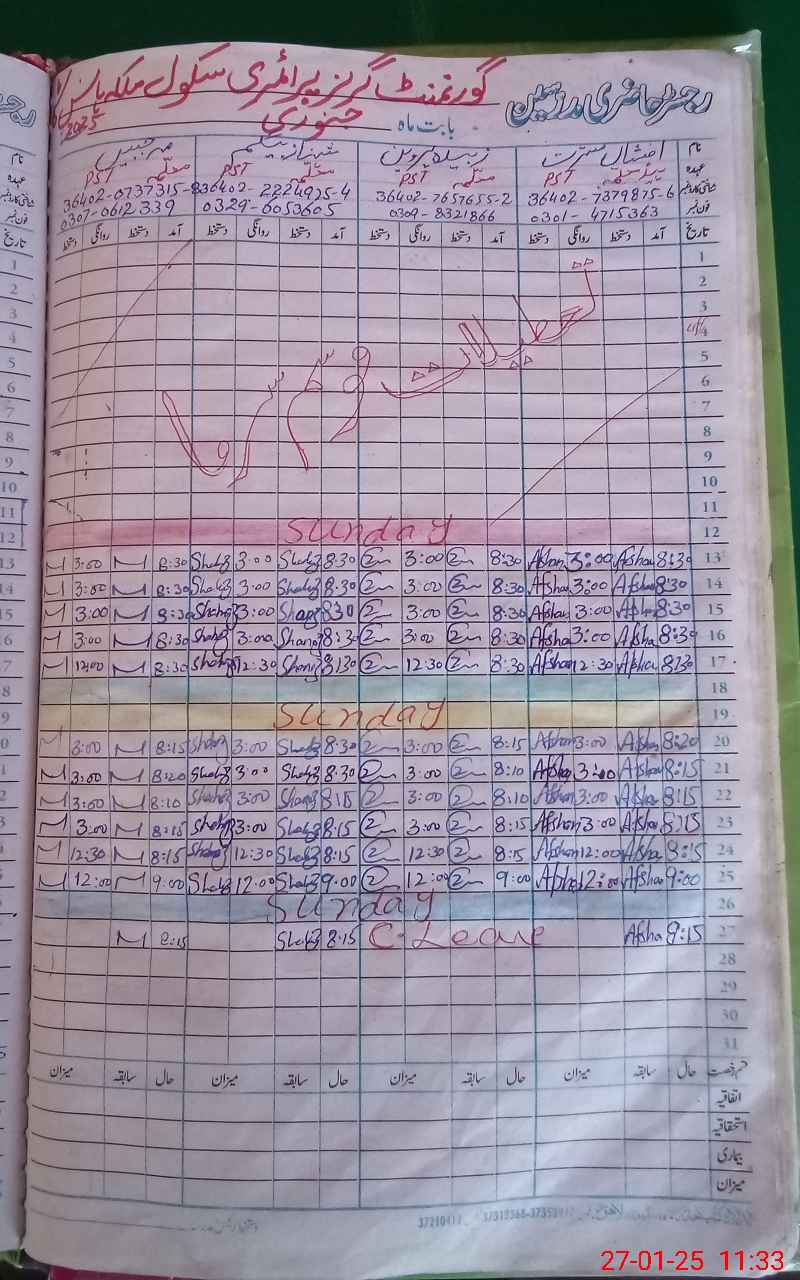 رجسٹر حاضری مدرسین گورنمنٹ گرلز پرائمری سکول ملکہ ہانس
بابت ماہ جنوری 2025
نام افشاں مسرت زبیدہ پروین شہناز بیگم مہر جبیں
عہدہ PST ہیڈ معلمہ PST معلمہ PST معلمہ PST معلمہ
36402-7379875-6 36402-7657655-2 36402-2224925-4 36402-0737315-8
فون نمبر 0301-4715363 0309-8321866 0329-6053605 0307-0612339
تاریخ آمد دستخط روانگی دستخط آمد دستخط روانگی دستخط آمد دستخط روانگی دستخط آمد دستخط روانگی دستخط
1
2
3
4
5
6
7
8
9
10
11
تعطیلات موسم سرما
12 Sunday
13 8:30 Afsha 3:00 Afshan 8:30 3:00 8:30 Shahz 3:00 Shahz 8:30 M 3:00 M
14 8:30 Afsha 3:00 Afshan 8:30 3:00 8:30 Shahz 3:00 Shahz 8:30 M 3:00 M
15 8:30 Afsha 3:00 Afshan 8:30 3:00 8:30 Shahz 3:00 Shahz 8:30 M 3:00 M
16 8:30 Afsha 3:00 Afshan 8:30 3:00 8:30 Shahz 3:00 Shahz 8:30 M 3:00 M
17 8:30 Afsha 12:30 Afshan 8:30 12:30 8:30 Shahz 12:30 Shahz 8:30 M 12:00 M
18
19 Sunday
20 8:20 Afsha 3:00 Afshan 8:15 3:00 8:30 Shahz 3:00 Shahz 8:15 M 3:00 M
21 8:15 Afsha 3:00 Afshan 8:10 3:00 8:30 Shahz 3:00 Shahz 8:20 M 3:00 M
22 8:15 Afsha 3:00 Afshan 8:10 3:00 8:15 Shahz 3:00 Shahz 8:10 M 3:00 M
23 8:15 Afsha 3:00 Afshan 8:15 3:00 8:15 Shahz 3:00 Shahz 8:15 M 3:00 M
24 8:15 Afsha 12:00 Afshan 8:15 12:30 8:15 Shahz 12:30 Shahz 8:15 M 12:30 M
25 9:00 Afshan 12:00 Afshan 9:00 12:00 9:00 Shahz 12:00 Shahz 9:00 M 12:00 M
26 Sunday
27 9:15 Afsha C-Leave 8:15 Shahz 8:15 M
28
29
30
31
قسم رخصت حال سابقہ میزان حال سابقہ میزان حال سابقہ میزان حال سابقہ میزان
اتفاقیہ
استحقاقیہ
بیماری
میزان
27-01-25 11:33